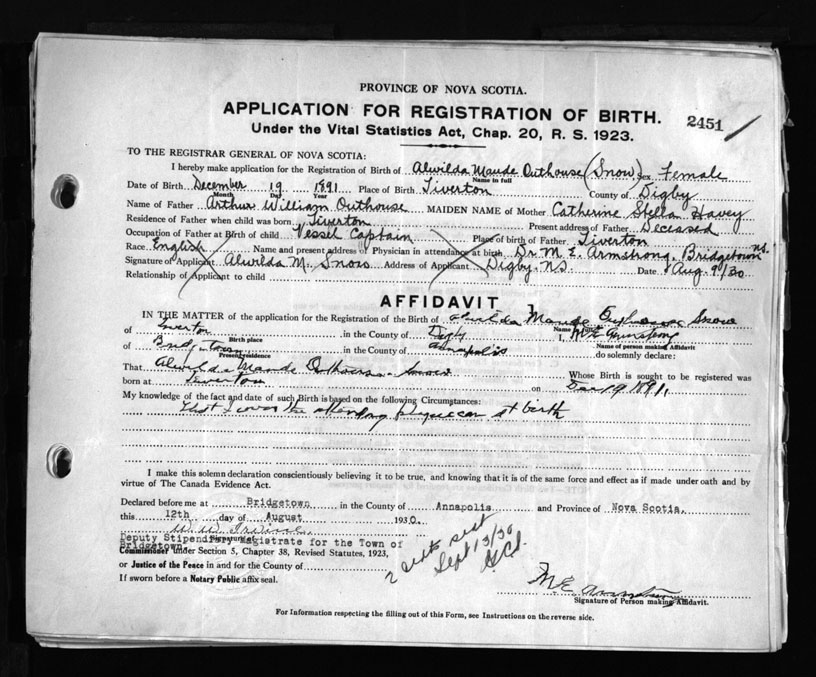 PROVINCE OF NOVA SCOTIA.
APPLICATION FOR REGISTRATION OF BIRTH.
2451
Under the Vital Statistics Act, Chap. 20, R. S. 1923.
TO THE REGISTRAR GENERAL OF NOVA SCOTIA:
I hereby make application for the Registration of Birth of Alwilda Maude Outhouse (Snow) Sex Female
Name in full
Date of Birth December 19 1891 Place of Birth Tiverton County of Digby
Month Day Year
Name of Father Arthur William Outhouse MAIDEN NAME of Mother Catherine Stella Havey
Residence of Father when child was born Tiverton Present address of Father Deceased
Occupation of Father at Birth of child Vessel Captain Place of birth of Father Tiverton
Race English Name and present address of Physician in attendance at birth Dr. M. E. Armstrong, Bridgetown N.S.
Signature of Applicant Alwilda M. Snow Address of Applicant Digby N.S. Date Aug. 9/30
Relationship of Applicant to child
AFFIDAVIT
IN THE MATTER of the application for the Registration of the Birth of Alwilda Maude Outhouse Snow
of Tiverton in the County of Digby I, M E Armstrong
Birth place Name of person making Affidavit
of Bridgetown in the County of Annapolis do solemnly declare:
Present residence
That Alwilda Maude Outhouse Snow Whose Birth is sought to be registered was
born at Tiverton on Dec 19 1891
My knowledge of the fact and date of such Birth is based on the following Circumstances:
That I was the attending physician at birth
I make this solemn declaration conscientiously believing it to be true, and knowing that it is of the same force and effect as if made under oath and by
virtue of The Canada Evidence Act.
Declared before me at Bridgetown in the County of Annapolis and Province of Nova Scotia.
this 12th day of August 1930.
Deputy Stipendiary Magistrate for the Town of
Bridgetown
Commissioner under Section 5, Chapter 38, Revised Statutes, 1923,
or Justice of the Peace in and for the County of
If sworn before a Notary Public affix seal.
Sept 13/30
M E Armstrong
Signature of Person making Affidavit.
For Information respecting the filling out of this Form, see Instructions on the reverse side.